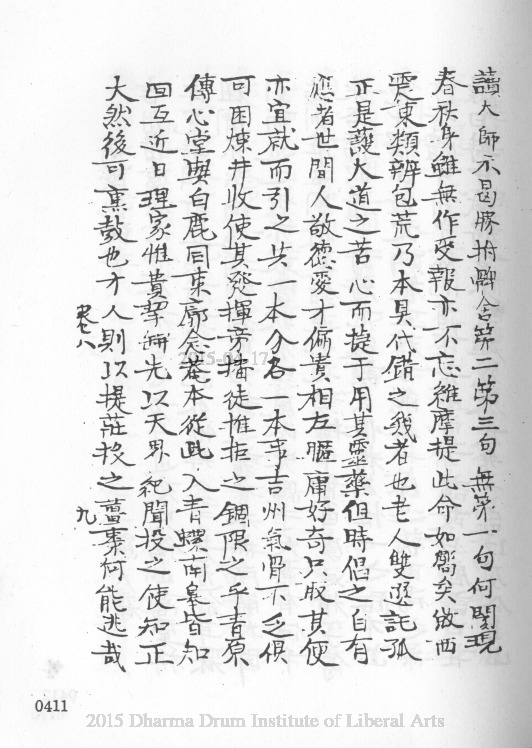 讀大師示曷勝拊髀舍第二第三句無第一句何關現
春秋身雖無作受報亦不忘維摩提此命如嚮矣俶西
夏東類辨包荒乃本具代錯之幾者也老人雙選託孤
正是護大道之苦心而提于用其靈藥但時倡之自有
應者世間人敬德愛才偏貴相左驅庸好奇只取其便
亦宜就而引之共一本分各一本事吉州氣骨不乏俱
可困煉井收使其發揮旁播徒推拒之錮限之乎青原
傳心堂與白鹿同東廓念菴本從此入青螺南皋皆知
回互近日理家惟貴挈
先以天界紀聞投之使知正
大然後可熏鼓也才人則以提莊投之薑棗何能逃哉
卷八
九
0411
2015-04-17
2015 Dharma Drum Institute of Liberal Arts